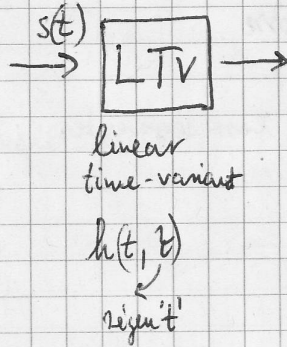 s(t)
LTV
linear
time-variant
h(t, t)